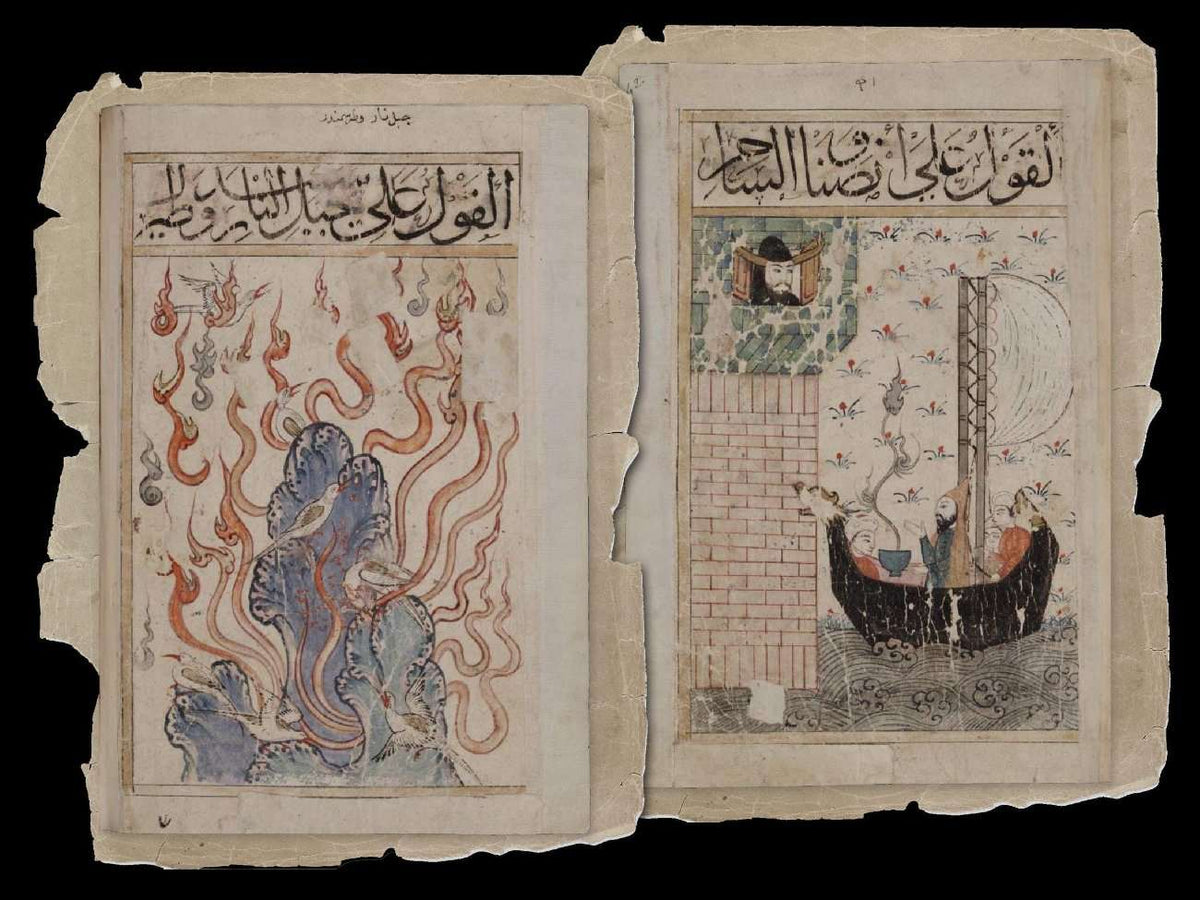 جبل نار وطير سمندر
القول على جبل النار وطير
القول على أنصنا و الساحر